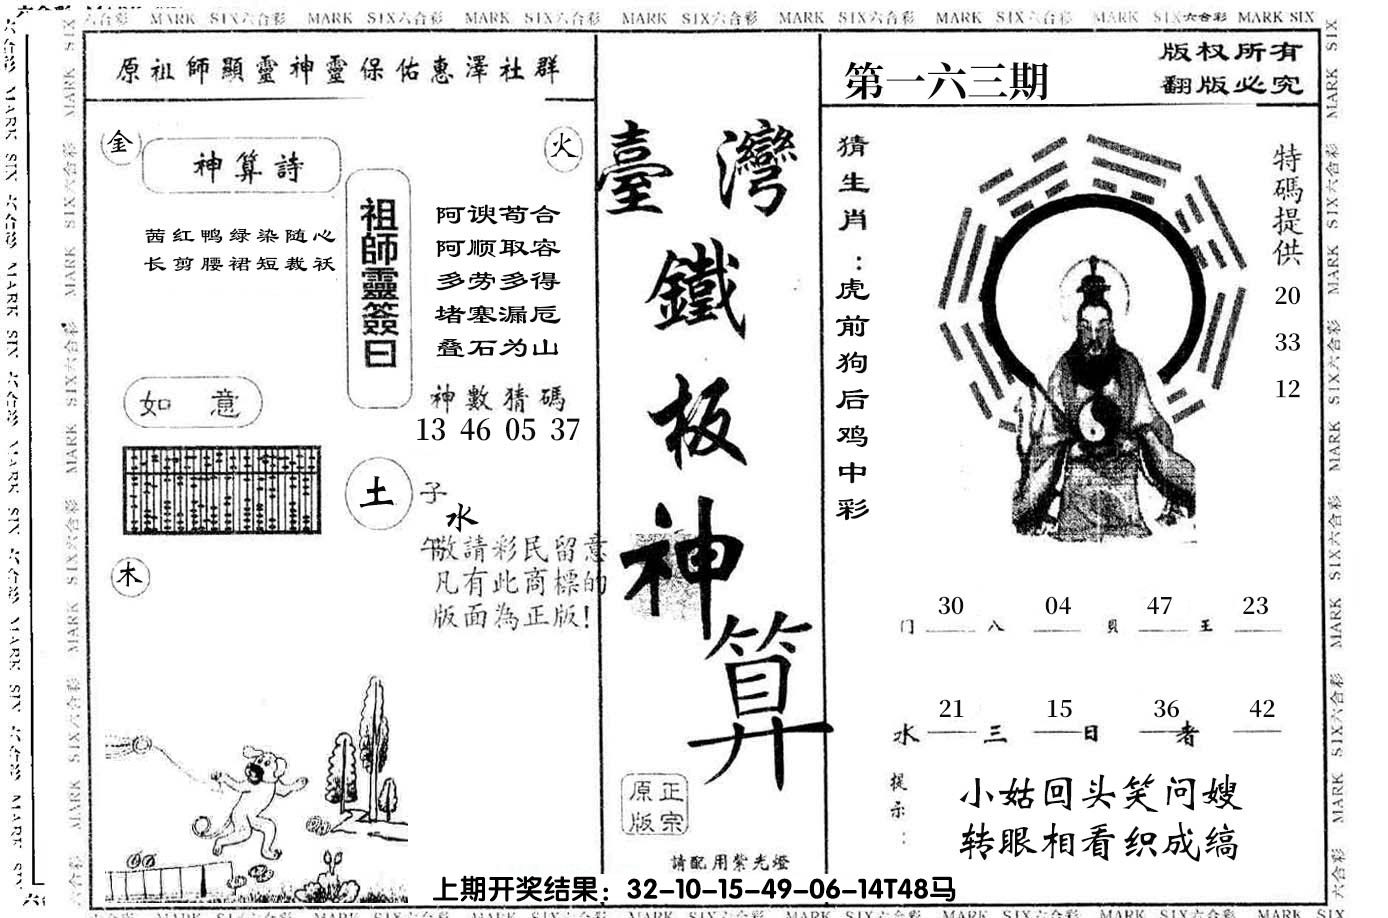 MARK SIX六合彩 MARK SIX六合彩 MARK SIX六合彩 MARK SIX六合彩 MARK SIX六合彩 MARK SIX六合彩 MARK SIX六合彩 MARK SIX
原祖師顯靈神靈保佑惠澤社群
金
火
神算詩
茜红鸭绿染随心
长剪腰裙短裁袄
祖師靈簽曰
阿谀苟合
阿顺取容
多劳多得
堵塞漏卮
叠石为山
神數猜碼
13 46 05 37
如 意
土
子
水
午
木
敬請彩民留意
凡有此商標的
版面為正版!
臺灣
鐵
板
神
算
原正
版宗
請配用紫光燈
第一六三期
版权所有
翻版必究
猜生肖：虎前狗后鸡中彩
特碼提供
20
33
12
门 30 八 04 贝 47 王 23
水 21 三 15 日 36 者 42
提示：
小姑回头笑问嫂
转眼相看织成缟
上期开奖结果：32-10-15-49-06-14T48马